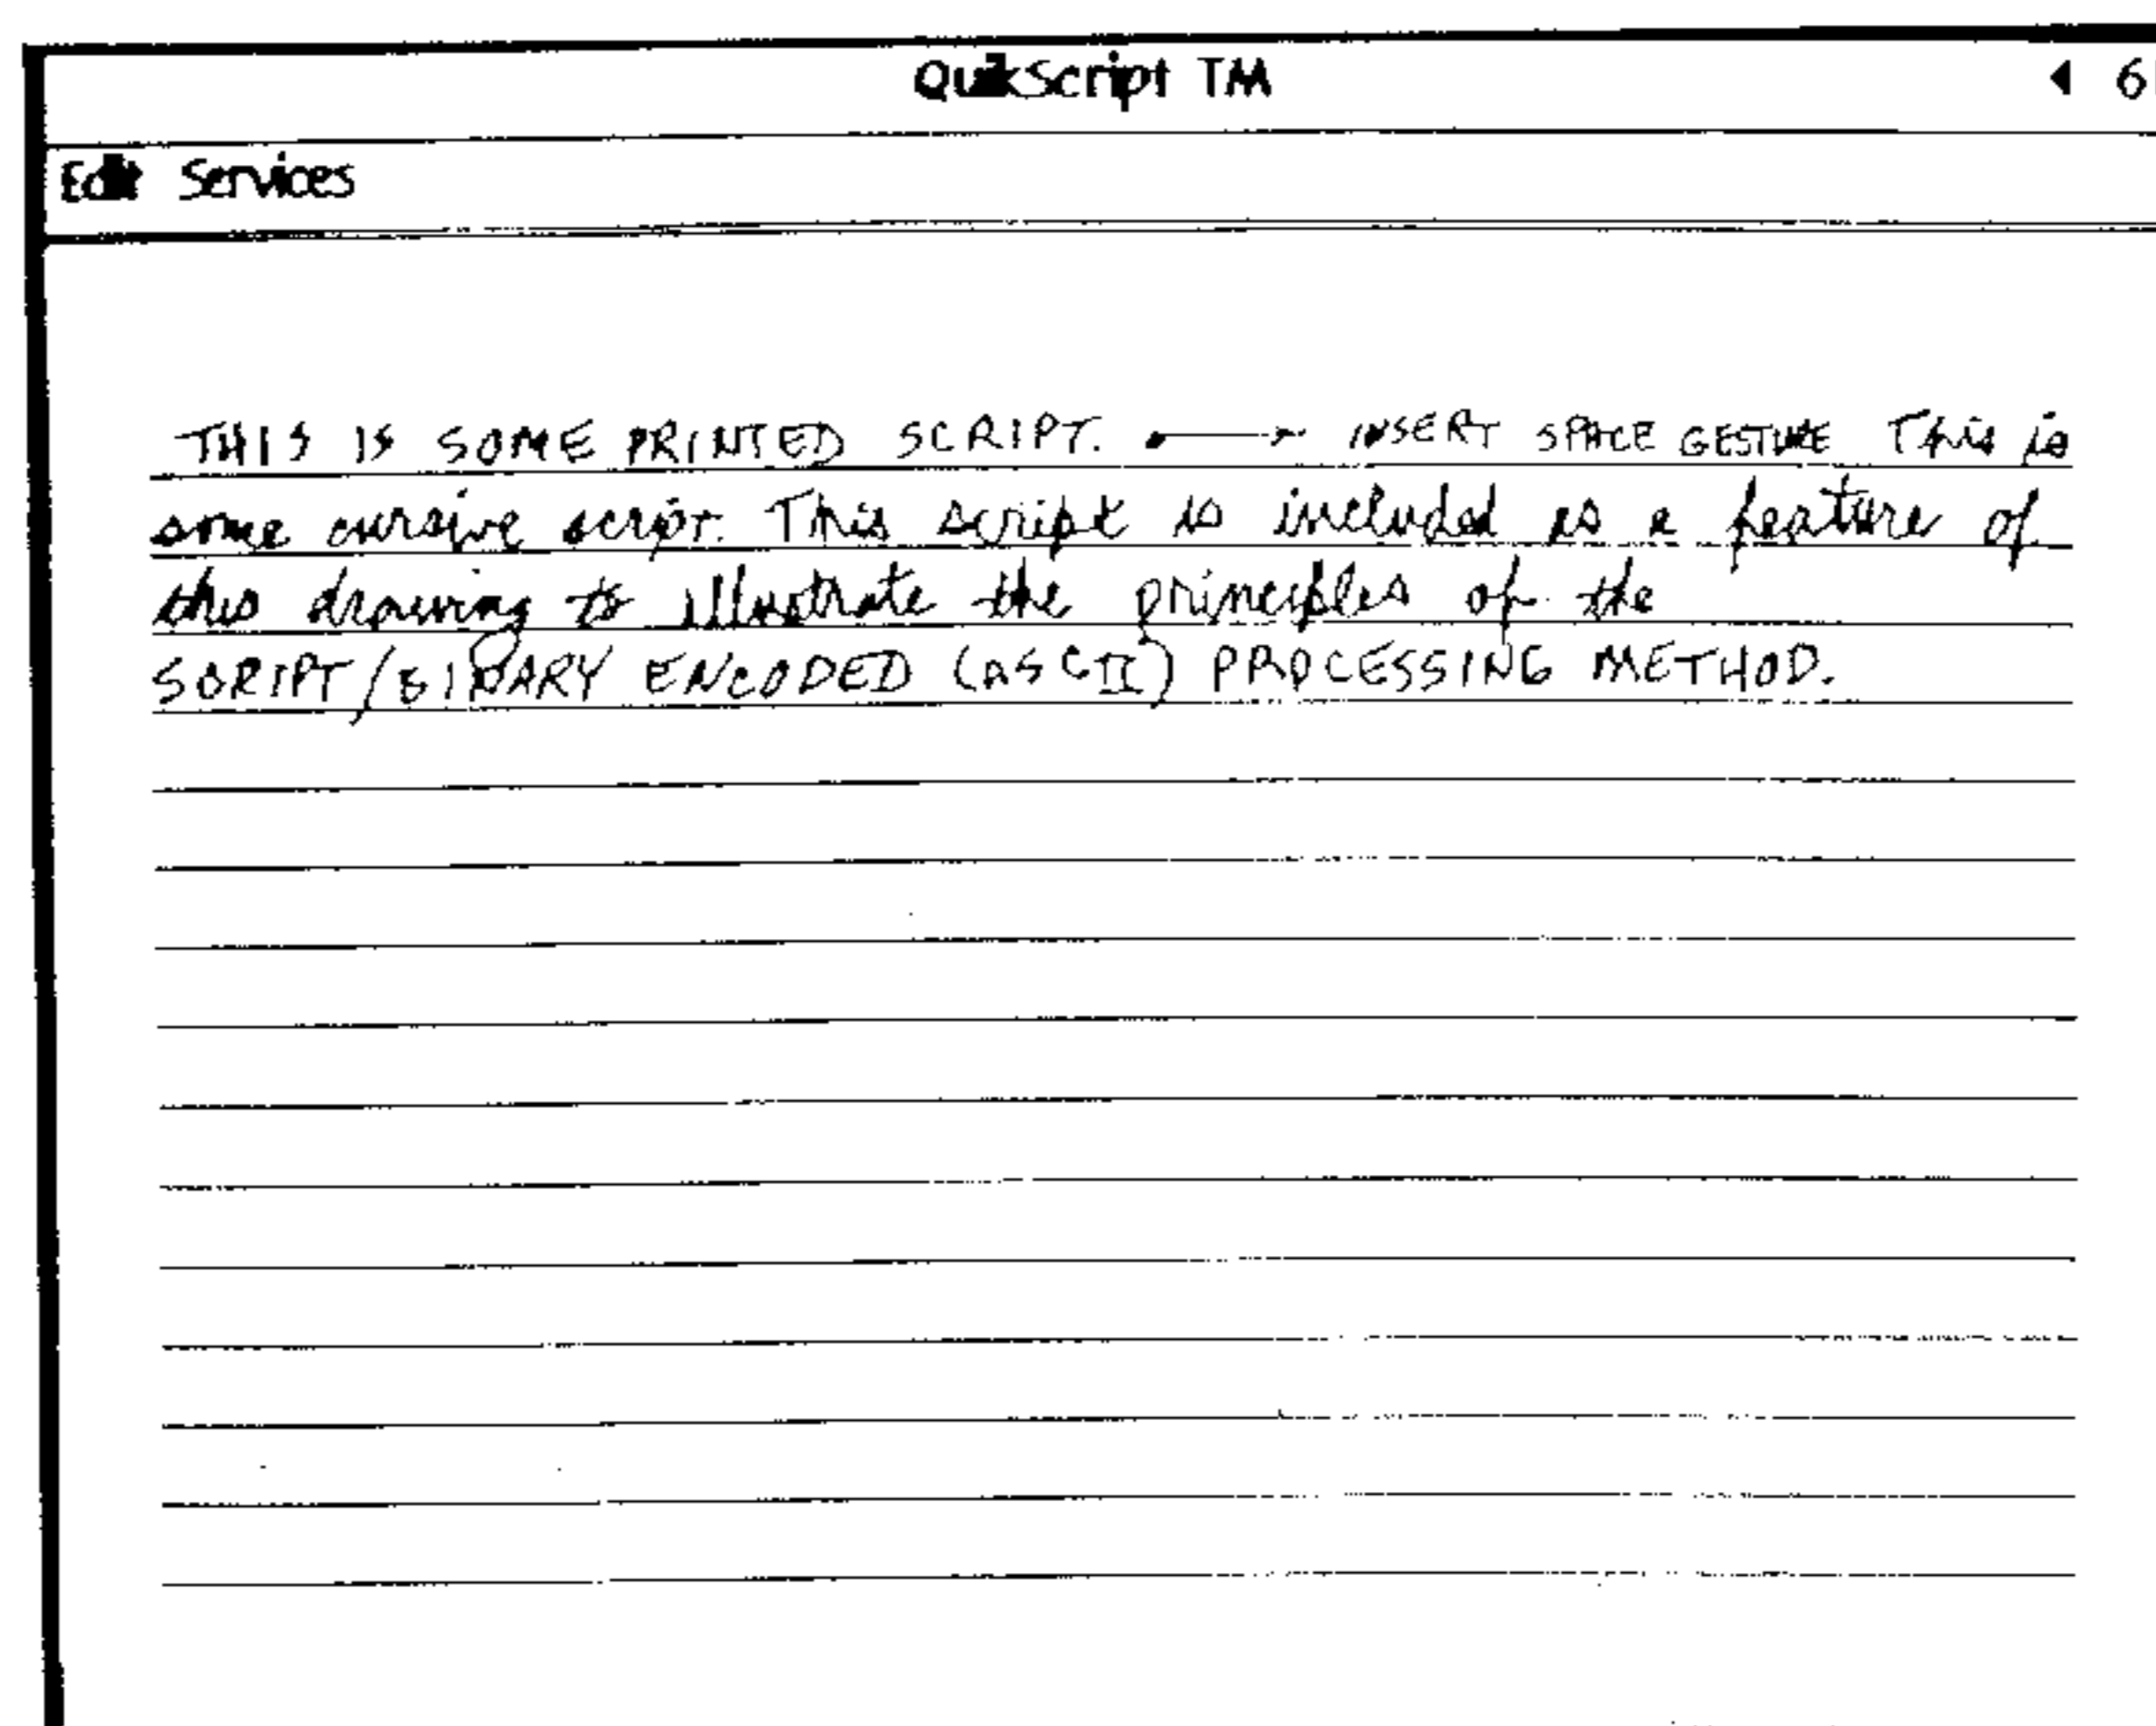 QuikScript TM ◀ 6
Edit Services
THIS IS SOME PRINTED SCRIPT. •——> INSERT SPACE GESTURE This is
some cursive script. This script is included as a feature of
this drawing to illustrate the principles of the
SCRIPT/BINARY ENCODED (ASCII) PROCESSING METHOD.